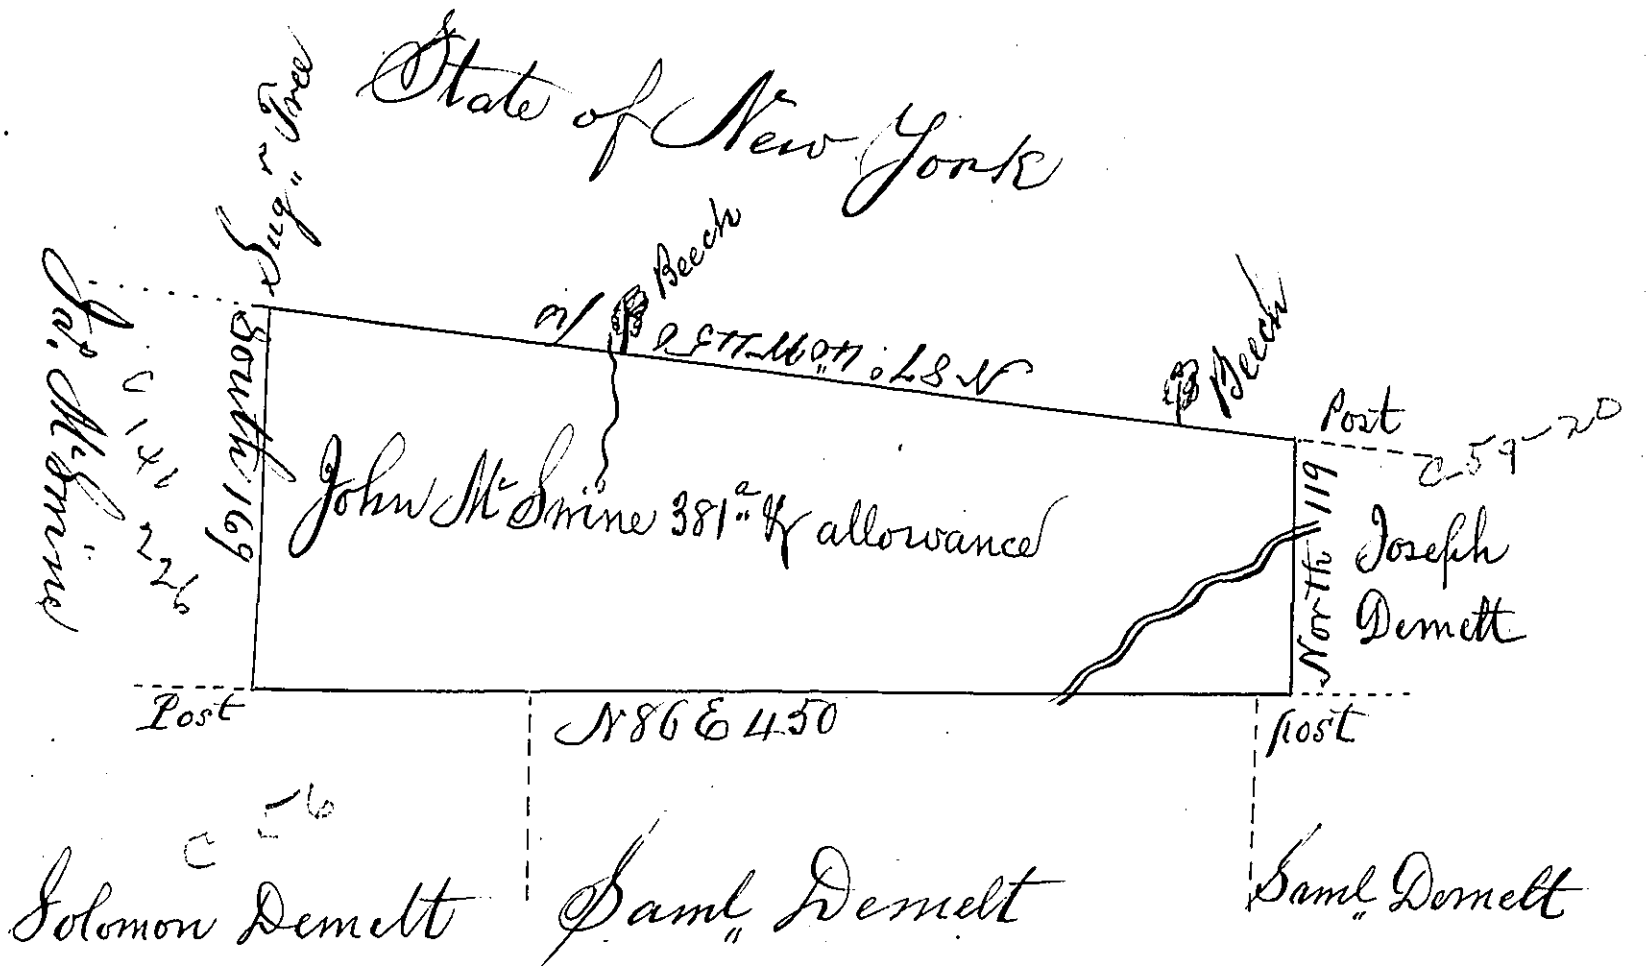 State of New York
Sugr Tree
Beech
Beech
Post
C 59-20
South 169
John Mc Swine 381a & allowance
North 119
Joseph
Demelt
Post
N 86 E 450
Post
C 56
Solomon Demelt
Saml Demelt
Saml Demelt